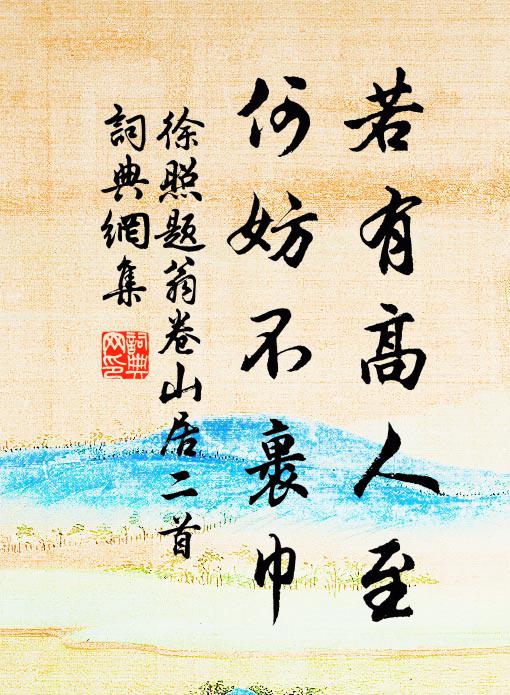 若有高人至
何妨不裹巾
徐照題翁卷山居二首
詞典網集
詞典
网印